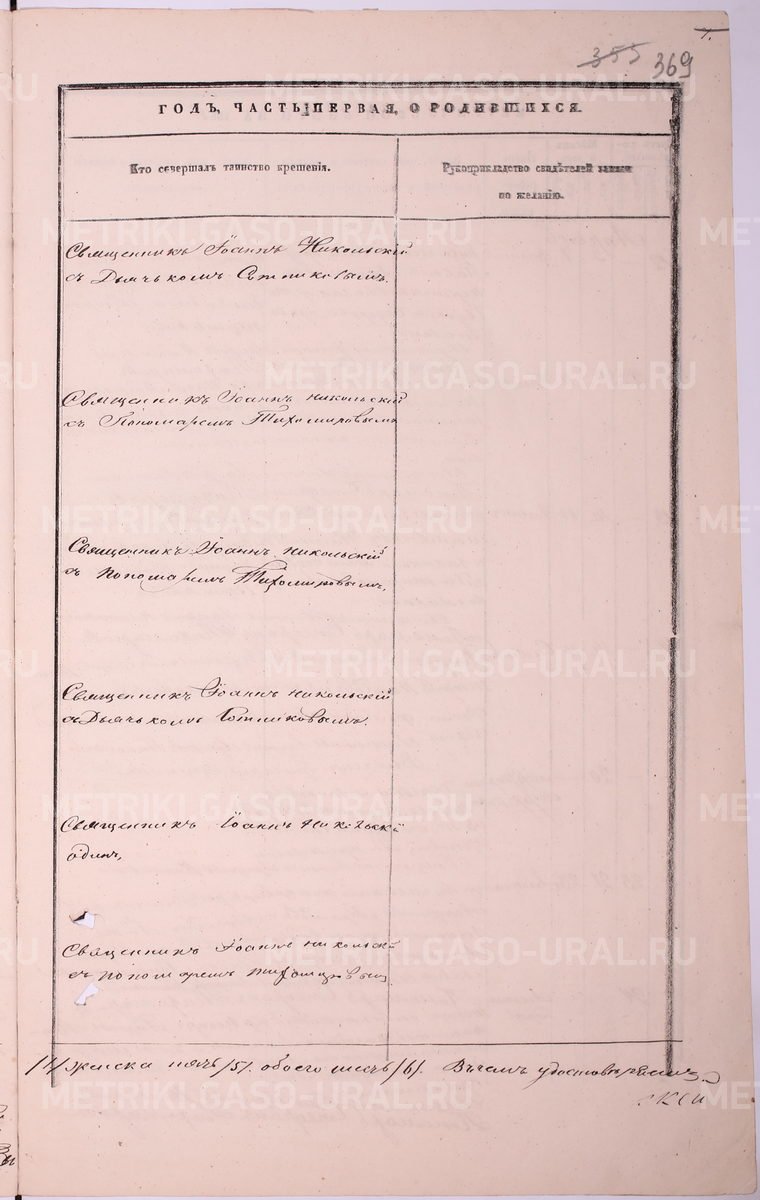 7.
355 369
ГОДЪ, ЧАСТЬ ПЕРВАЯ, О РОДИВШИХСЯ.
Кто совершалъ таинство крещенія.
Рукоприкладство свидѣтелей записи
по желанію.
Священникъ Іоаннъ Никольскій
съ Дьячькомъ Сотниковымъ.
Священникъ Іоаннъ Никольскій
съ Пономаремъ Тихомировымъ
Священникъ Іоаннъ Никольскій
съ Пономаремъ Тихомировымъ.
Священникъ Іоаннъ Никольскій
съ Дьячькомъ Сотниковымъ.
Священникъ Іоаннъ Никольскій
одинъ,
Священникъ Іоаннъ Никольскій
съ пономаремъ Тихомировым
/1/ женска пять /5/. обоего шесть /6/. Въ чемъ удостовѣряемъ
METRIKI.GASO-URAL.RU